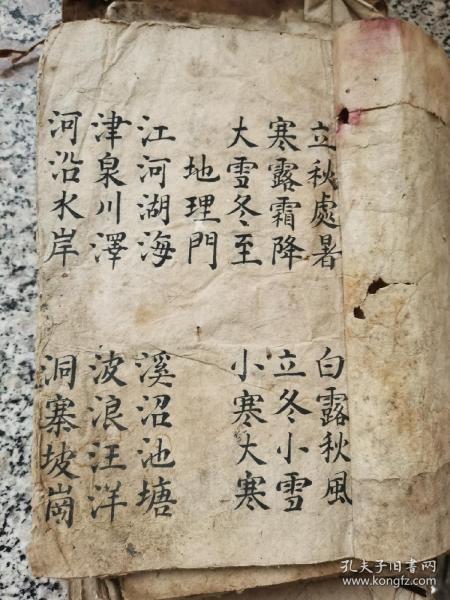 立秋處暑 白露秋風
寒露霜降 立冬小雪
大雪冬至 小寒大寒
地理門
江河湖海 溪沼池塘
津泉川澤 波浪汪洋
河沿水岸 洞寨坡崗
孔夫子旧书网
www.kongfz.com